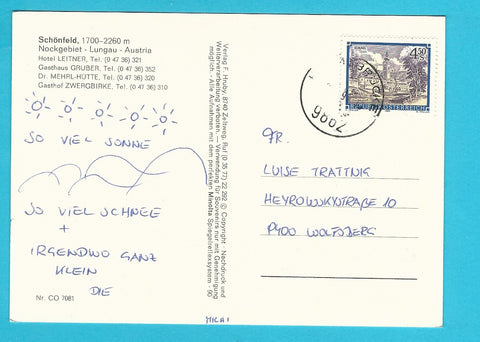 Schönfeld, 1700–2260 m
Nockgebiet - Lungau - Austria
Hotel LEITNER, Tel. (0 47 36) 321
Gasthaus GRUBER, Tel. (0 47 36) 352
Dr. MEHRL-HÜTTE, Tel. (0 47 36) 320
Gasthof ZWERGBIRKE, Tel. (0 47 36) 310
SO VIEL SONNE
SO VIEL SCHNEE
+
IRGENDWO GANZ
KLEIN
DIE
MICHI
Nr. CO 7081
Verlag F. Hruby, 8740 Zeltweg, Ruf (0 35 77) 22 282 © Copyright Nachdruck und
Weiterverarbeitung verboten. — Verwendung für Souvenirs nur mit Genehmigung
möglich - Alle Aufnahmen mit dem perfekten Minolta Spiegelreflexsystem - 90
4.50
REPUBLIK ÖSTERREICH
FR.
LUISE TRATTNIG
HEYROWSKYSTRAßE 10
9400 WOLFSBERG